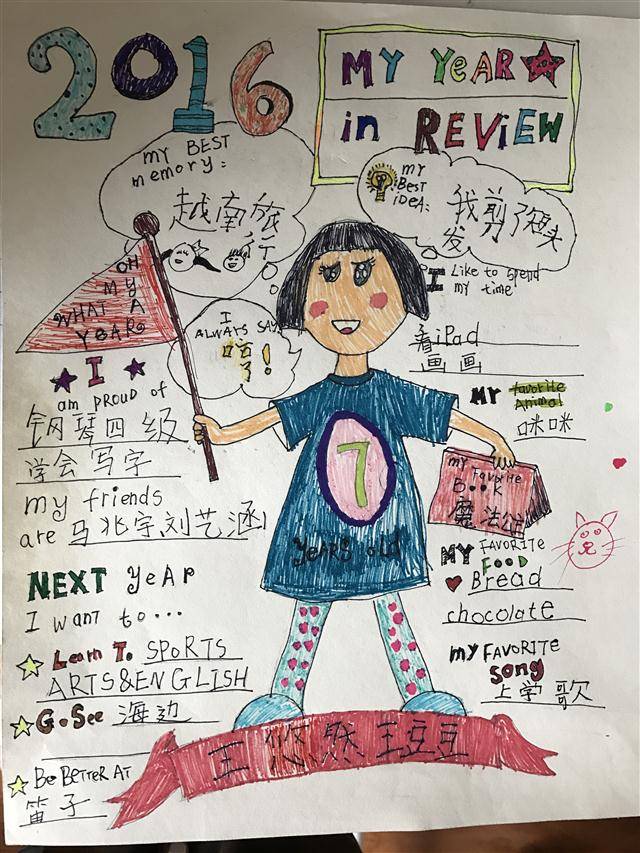 2016
MY YEAR
in REVIEW
MY BEST
memory:
越南旅
行
MY
BEST
iDEA:
我剪了短头
发
OH
MY
WHAT A
YEAR
I
ALWAYS SAY
哈
了!
I Like to spend
my time
看iPad
画画
MY favorite
Animal
咪咪
I
am PROUD of
钢琴四级
学会写字
my friends
are 马兆宇刘艺涵
7
YEARS old
MY
FAVORITE
BOOK
MY FAVORITE
FOOD
Bread
chocolate
MY FAVORITE
SONG
上学歌
NEXT YeAR
I want to...
Learn To SPORTS
ARTS&ENGLISH
Go See 海边
Be BETTER AT
笛子
王悠然 王豆豆